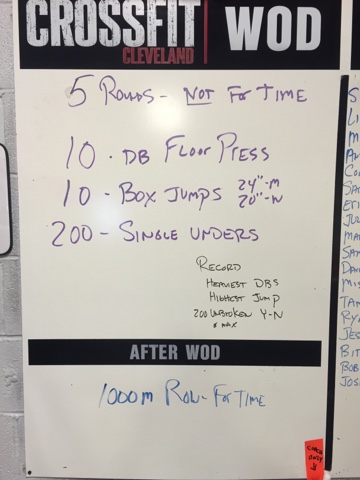 CROSSFIT
CLEVELAND
WOD
5 ROUNDS - NOT FOR TIME
10 - DB FLOOR PRESS
10 - BOX JUMPS 24"-M
20"-W
200 - SINGLE UNDERS
RECORD
HEAVIEST DBS
HIGHEST JUMP
200 UNBROKEN Y-N
MAX
AFTER WOD
1000m ROW - FOR TIME